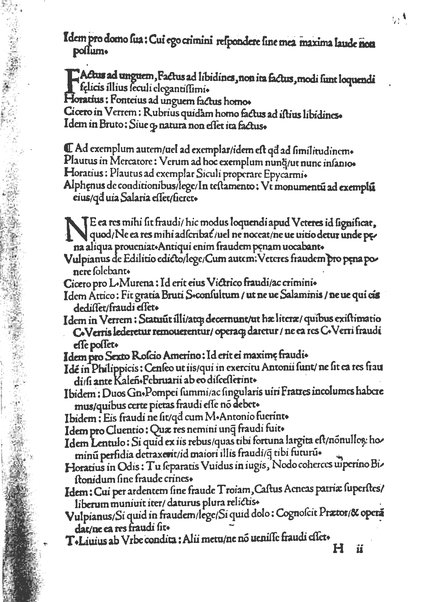 Idem pro domo sua: Cui ego crimini respondere sine mea maxima laude non
possum.
FActus ad unguem, Factus ad libidines, non ita factus, modi sunt loquendi
felicis illius seculi elegantissimi.
Horatius: Fonteius ad unguem factus homo.
Cicero in Verrem: Rubrius quidam homo factus ad istius libidines.
Idem in Bruto: Siue ꝙ natura non esset ita factus.
¶ Ad exemplum autem/uel ad exemplar/idem est qd ad similitudinem.
Plautus in Mercatore: Verum ad hoc exemplum nunꝗ̃/ut nunc insanio.
Horatius: Plautus ad exemplar Siculi properare Epycarmi.
Alphenus de conditionibus/lege/In testamento: Vt monumentũ ad exemplũ
eius/qd uia Salaria esset/fieret.
NE ea res mihi sit fraudi/hic modus loquendi apud Veteres id significat,
quod/Ne ea res mihi adscribat̃/uel ne noceat/ne ue uitio detur unde pę-
na aliqua proueniat. Antiqui enim fraudem pęnam uocabant.
Vulpianus de Edilitio edicto/lege/Cum autem: Veteres fraudem pro pęna po-
nere solebant.
Cicero pro L. Murena: Id erit eius Victrico fraudi/ac crimini.
Idem Attico: Fit gratia Bruti S. consultum/ut ne ue Salaminis/ne ue qui eis
dedisset/fraudi esset.
Idem in Verrem: Statuũt illi/atq; decernunt/ut hæ literæ/quibus existimatio
C. Verris lederetur remouerentur/operaq; daretur/ne ea res C. Verri fraudi
esse posset.
Idem pro Sexto Roscio Amerino: Id erit ei maxime fraudi.
Idē in Philippicis: Censeo ut iis/qui in exercitu Antonii sunt/ne sit ea res frau
di/si ante Kaleñ. Februarii ab eo discesserint.
Ibidem: Duos Gn. Pompei summi/ac singularis uiri Fratres incolumes habere
mus/quibus certe pietas fraudi esse nõ debet.
Ibidem: Eis fraudi ne sit/qd cum M. Antonio fuerint.
Idem pro Cluentio: Quæ res nemini unq̃ fraudi fuit.
Idem Lentulo: Si quid ex iis rebus/quas tibi fortuna largita est/nõnullos; ho-
minũ perfidia detraxerit/id maiori illis fraudi/q̃ tibi futurũ.
Horatius in Odis: Tu separatis Vuidus in iugis, Nodo coherces uiperino Bi-
stonidum sine fraude crines.
Idem: Cui per ardentem sine fraude Troiam, Castus Aeneas patriæ superstes/
liberum muniuit iter/daturus plura relictis.
Vulpianus/Si quid in fraudem/lege/Si quid dolo: Cognoscit Prætor/& operã
dat/ne ea res fraudi sit.
T. Liuius ab Vrbe condita: Alii metu/ne nõ uenisse fraudi esset.
H ii